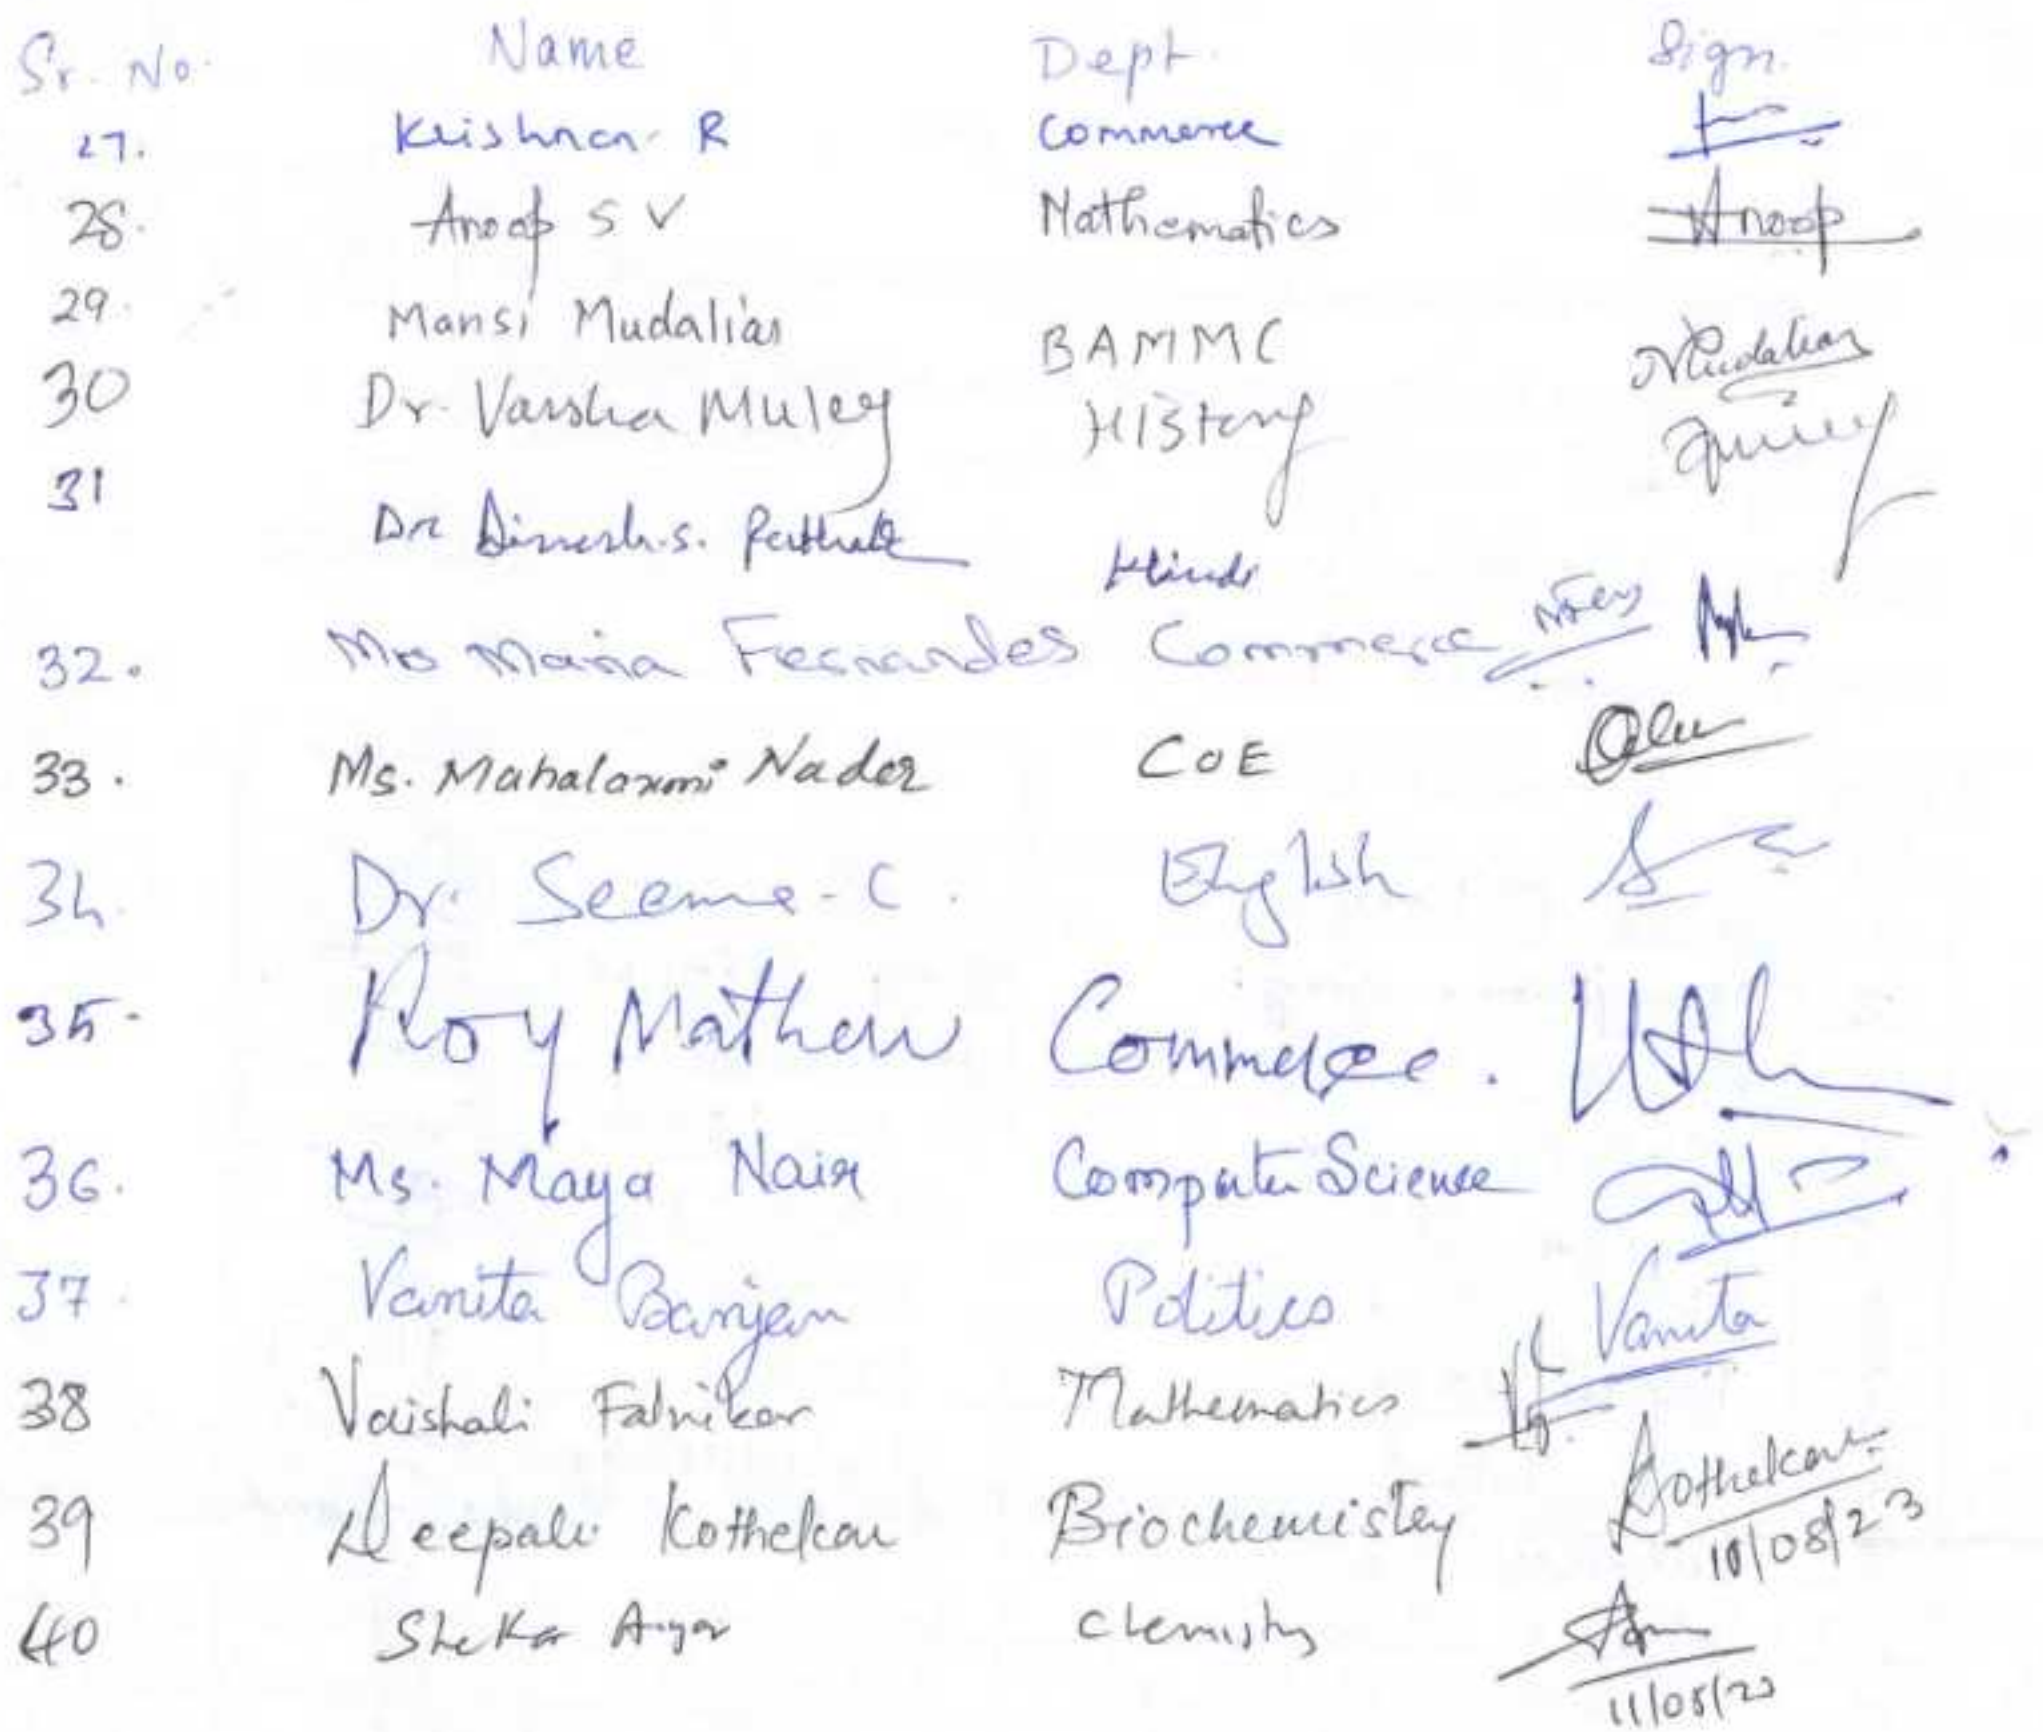 Sr. No. Name Dept. Sign.
27. Krishnan R Commerce
28. Anoop S V Mathematics Anoop
29. Mansi Mudaliar BAMMC Mudaliar
30 Dr. Varsha Muley History
31 Dr Dinesh. S. Pathak Hindi
32. Ms Maria Fernandes Commerce
33. Ms. Mahalaxmi Nader COE
34. Dr. Seema - C. English
35. Roy Mathew Commerce.
36. Ms. Maya Nair Computer Science
37. Vanita Banjan Politics Vanita
38 Vaishali Falnikar Mathematics
39 Deepali Kothekar Biochemistry Kothekar
10/08/23
40 Chemistry